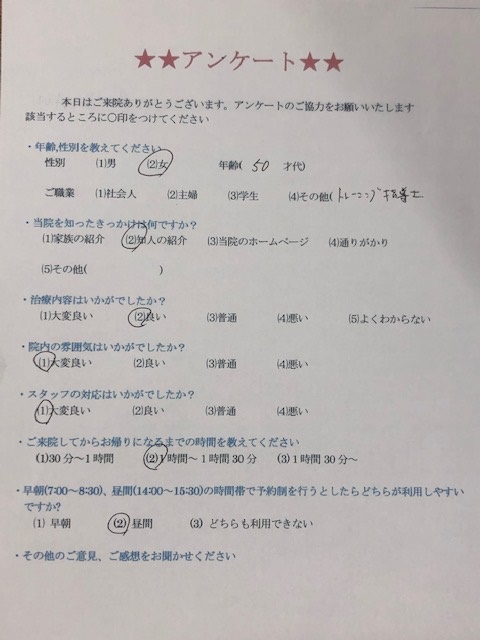 ★★アンケート★★
本日はご来院ありがとうございます。アンケートのご協力をお願いいたします
該当するところに〇印をつけてください
・年齢,性別を教えてください
性別 (1)男 (2)女 年齢( 50 才代)
ご職業 (1)社会人 (2)主婦 (3)学生 (4)その他( トレーニング指導士
・当院を知ったきっかけは何ですか？
(1)家族の紹介 (2)知人の紹介 (3)当院のホームページ (4)通りがかり
(5)その他( )
・治療内容はいかがでしたか？
(1)大変良い (2)良い (3)普通 (4)悪い (5)よくわからない
・院内の雰囲気はいかがでしたか？
(1)大変良い (2)良い (3)普通 (4)悪い
・スタッフの対応はいかがでしたか？
(1)大変良い (2)良い (3)普通 (4)悪い
・ご来院してからお帰りになるまでの時間を教えてください
(1)30分～1時間 (2)1時間～1時間30分 (3)1時間30分～
・早朝(7:00～8:30)、昼間(14:00～15:30)の時間帯で予約制を行うとしたらどちらが利用しやすい
ですか?
(1) 早朝 (2) 昼間 (3) どちらも利用できない
・その他のご意見、ご感想をお聞かせください